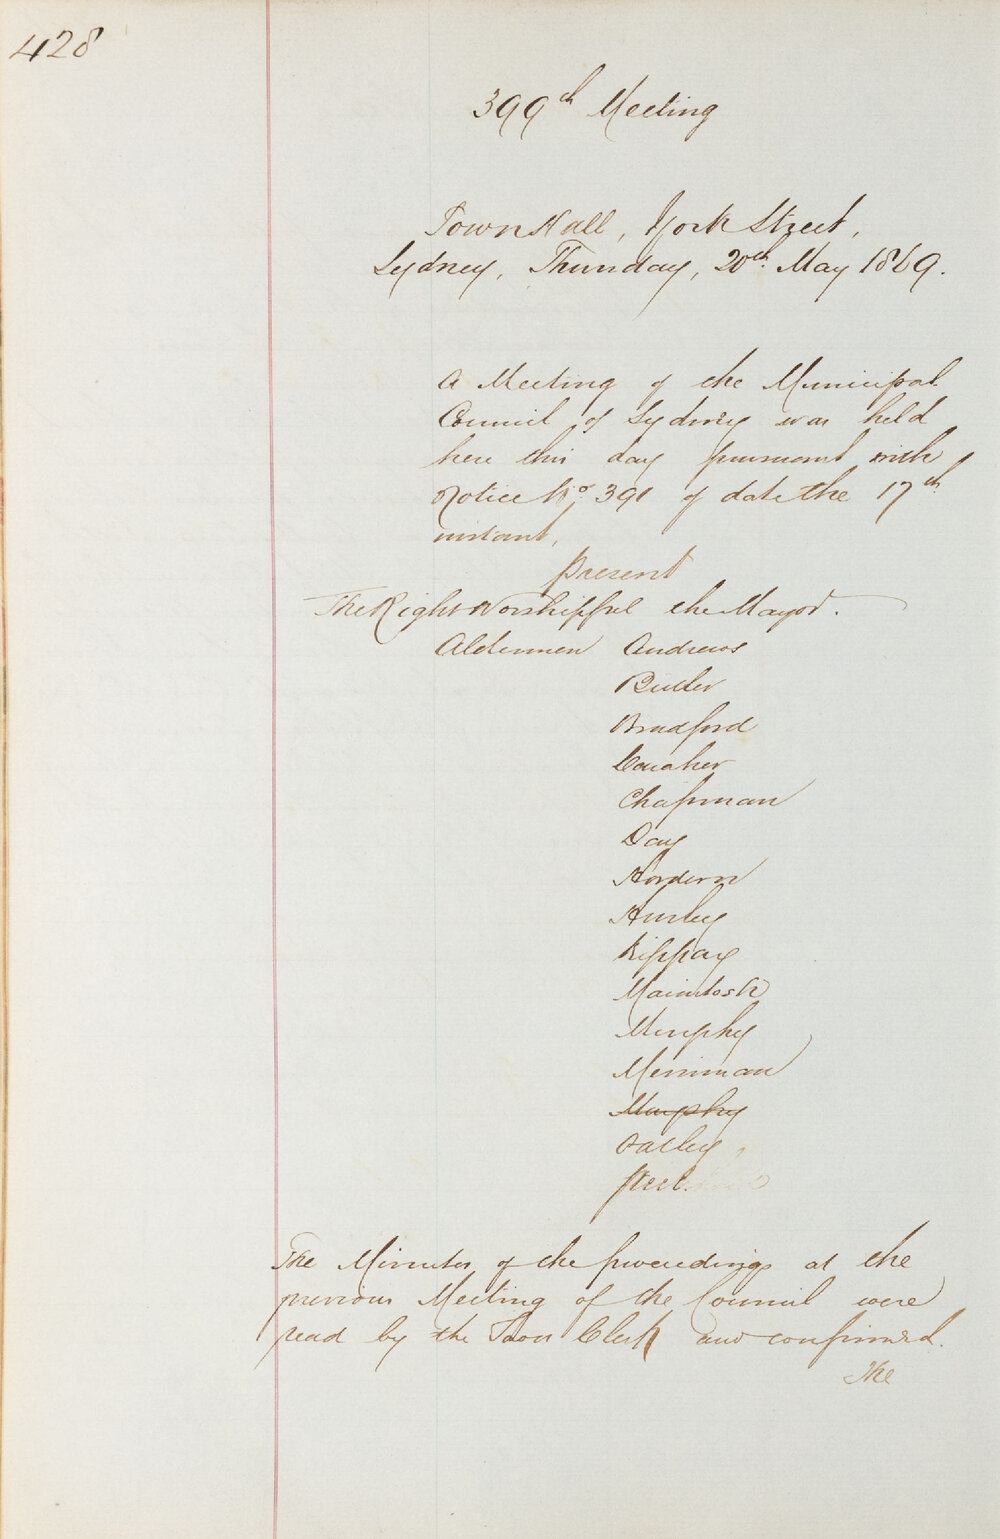 428
399th Meeting
Town Hall, York Street,
Sydney, Thursday, 20th. May 1869.
A Meeting of the Municipal
Council of Sydney was held
here this day pursuant with
Notice No. 391 of date the 17th.
instant,
Present
The Right Worshipful the Mayor.
Aldermen Andrews
Butler
Bradford
Caraher
Chapman
Day
Hordern
Hurley
Kippax
Macintosh
Murphy
Merriman
Murphy
Oatley
Steel
The Minutes of the proceedings at the
previous Meeting of the Council were
read by the Town Clerk and confirmed.
The